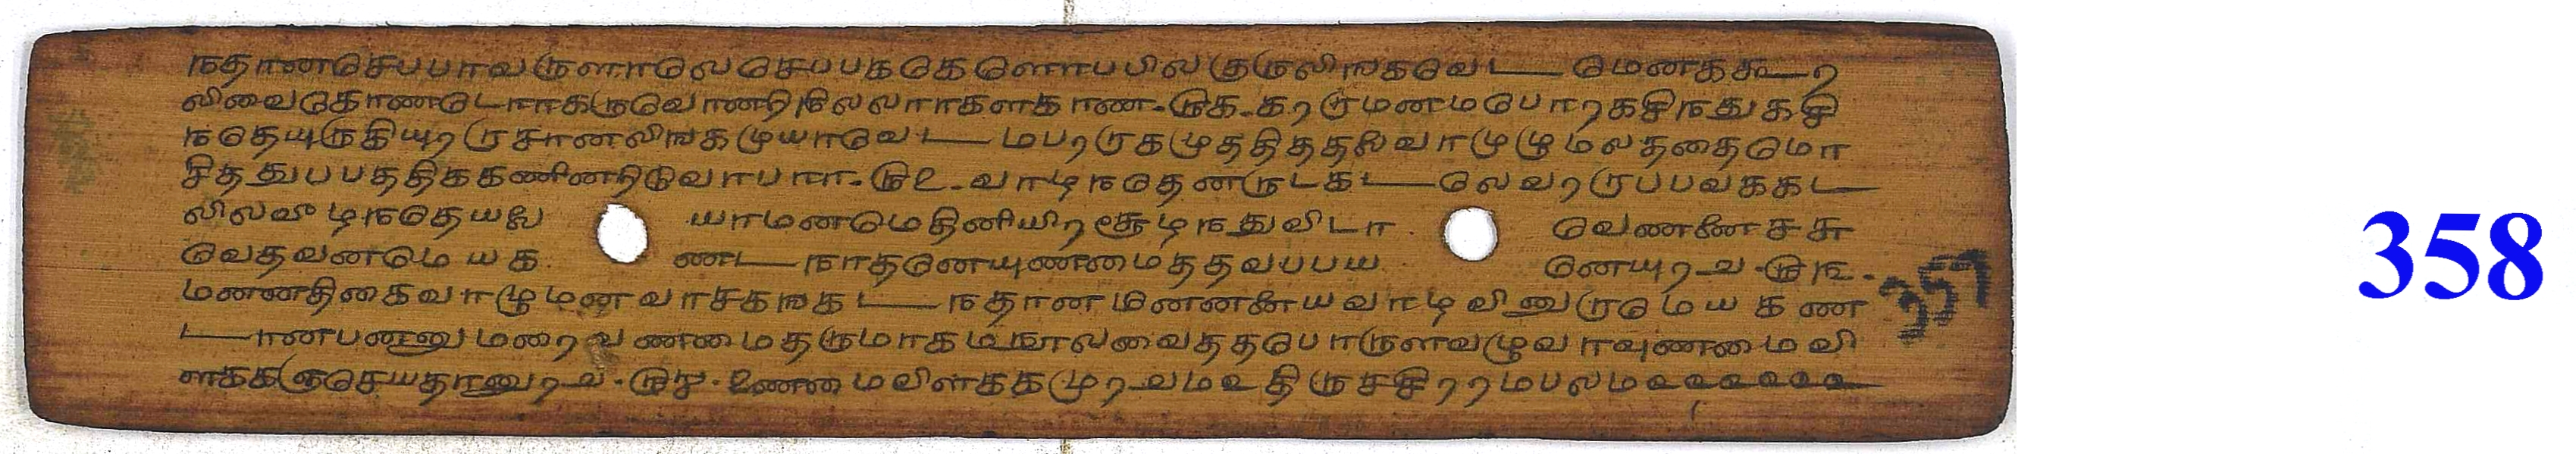 நதாணசெபபாவருளாலெசெபபககெளொபபிலகுருலிஙகவெடமெனககூற
லிவைகொணடொாகருவொணறிலலொாகளகாண-௫க-கரருமனமபொரகசிநதுகசி
நதெயுருகியுரருசானலிஙகமுயாவெடமபரருகமுததிததலைவாமுழுமலததைமொ
சிததுபபததிககணினறிடுவாபாா-௫௨-வாடிநதெனருடகடலெவரருபபவககட
லிலவீழநதெயலை யாமணமெதினியிறசூழநதுவிடா வெணணேசசு
வெதவனமெயக ணடநாதனெயுணமைததவபபய னெயுரவ-௫௩-
மணணதிகைவாழுமனவாசகஙகடநதானமனனனேயவாடிவினுருமெயகண
டானபணணுமறைவணமைதருமாகமநூலவைததபொருளவழுவாவுணமைவி
ளககஞசெயதானுரவ-௫௪-உணமைவிளககமுரவமஉதிருசசிரரமபலம
357
358